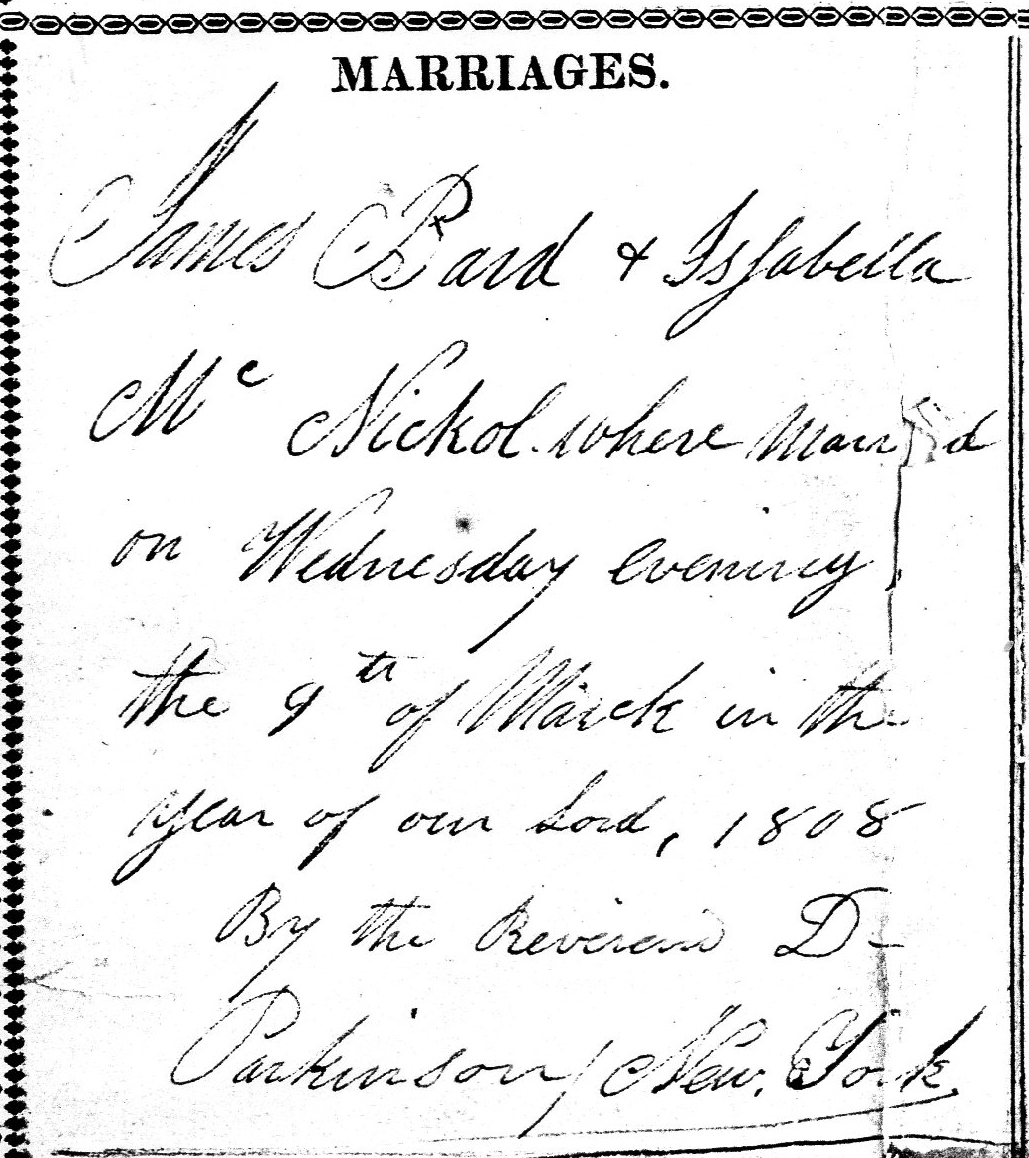 MARRIAGES.
James Bard & Issabella
Mc Nickol. where Married
on Wednesday evening
the 9th of March in the
year of our Lord, 1808
By the Reverend D-
Parkinson / New. York.